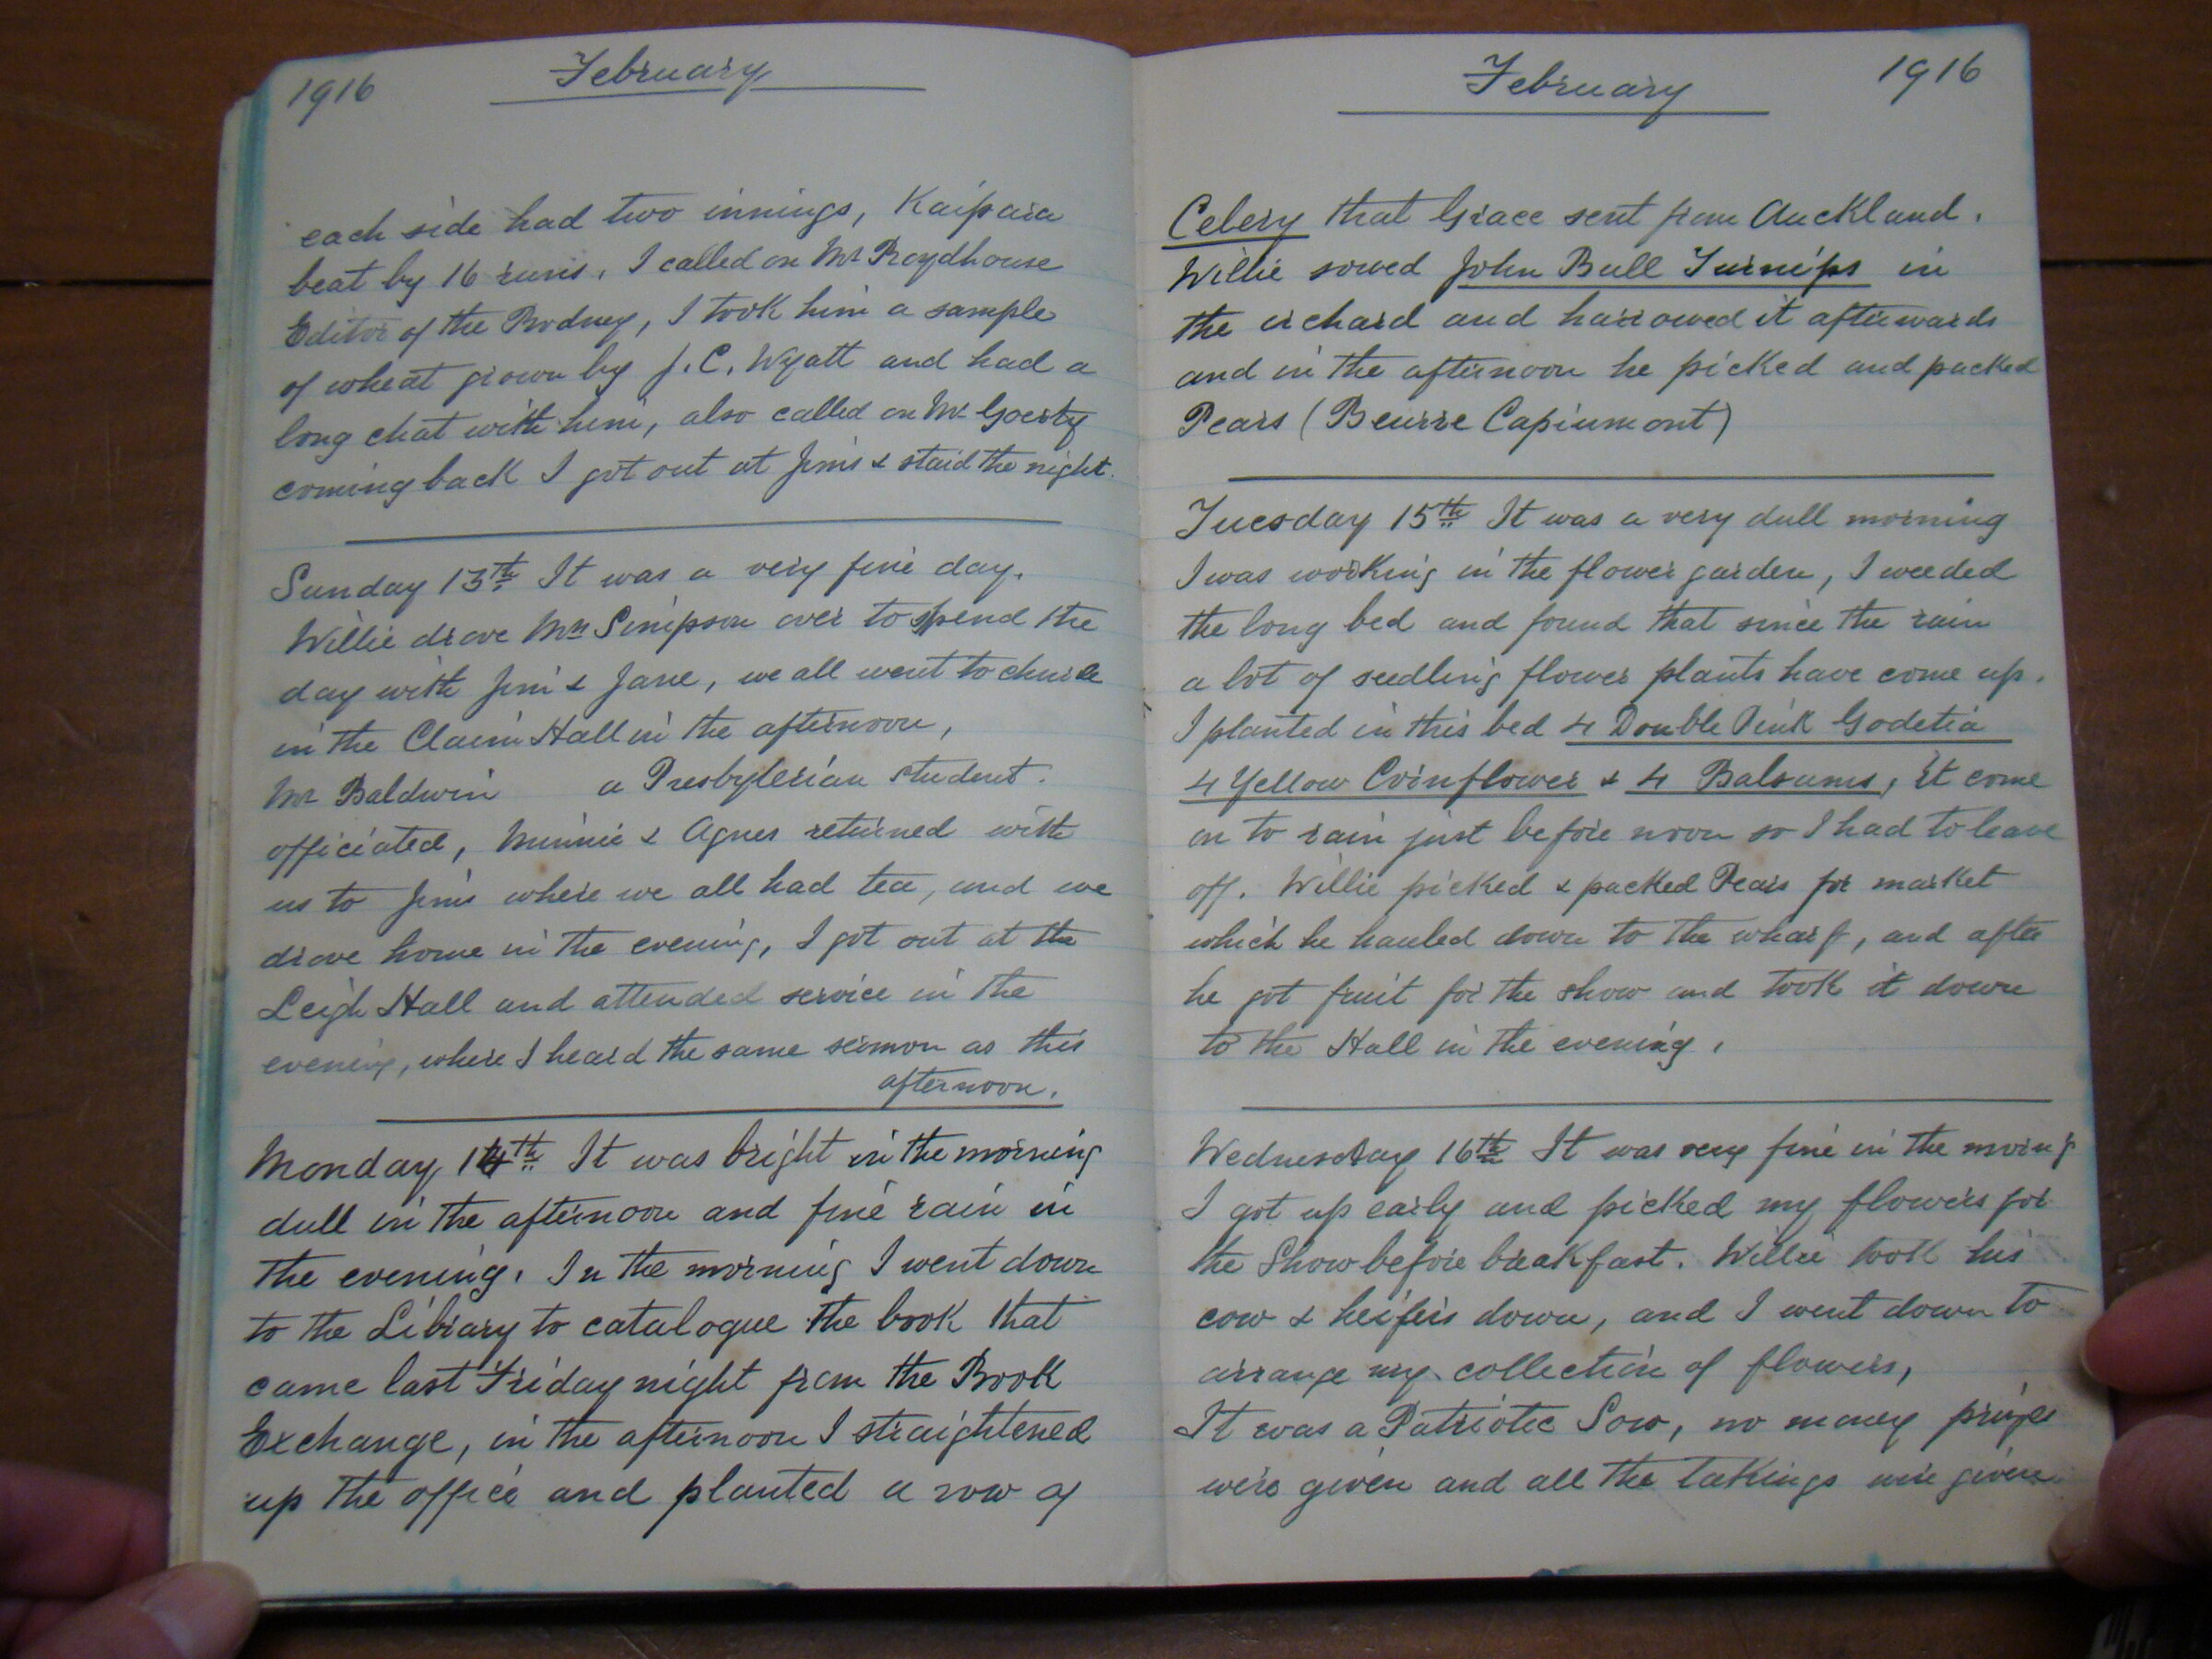 1916 February
each side had two innings, Kaipara
beat by 16 runs. I called on Mr Roydhouse
Editor of the Rodney, I took him a sample
of wheat grown by J. C. Wyatt and had a
long chat with him, also called on Mr
coming back I got out at Jim's & staid the night.
Sunday 13th It was a very fine day.
Willie drove Mrs Simpson over to spend the
day with Jim & Jane, we all went to
in the Claim Hall in the afternoon,
Mr Baldwin a Presbyterian student.
officiated, Minnie & Agnes returned with
us to Jim's where we all had tea, and we
drove home in the evening, I got out at the
Leigh Hall and attended service in the
evening, where I heard the same sermon as this
afternoon.
Monday 14th It was bright in the morning
dull in the afternoon and fine rain in
the evening. In the morning I went down
to the Library to catalogue the book that
came last Friday night from the Book
Exchange, in the afternoon I straightened
up the office and planted a row of
February 1916
Celery that Grace sent from Auckland.
Willie sowed John Bull Turnips in
the orchard and harrowed it afterwards
and in the afternoon he picked and packed
Pears (Beurre Capiumont)
Tuesday 15th It was a very dull morning
I was working in the flower garden, I weeded
the long bed and found that since the rain
a lot of seedling flower plants have come up.
I planted in this bed 4 Double Pink Godetia
4 Yellow Cornflower & 4 Balsams, it come
on to rain just before noon so I had to leave
off. Willie picked & packed Pears for market
which he hauled down to the wharf, and after
he got fruit for the show and took it down
to the Hall in the evening.
Wednesday 16th It was very fine in the moring
I got up early and picked my flowers for
the Show before breakfast. Willie took his
cow & heifers down, and I went down to
arrange my collection of flowers,
It was a Patriotic Sow, no money prizes
were given and all the takings were given